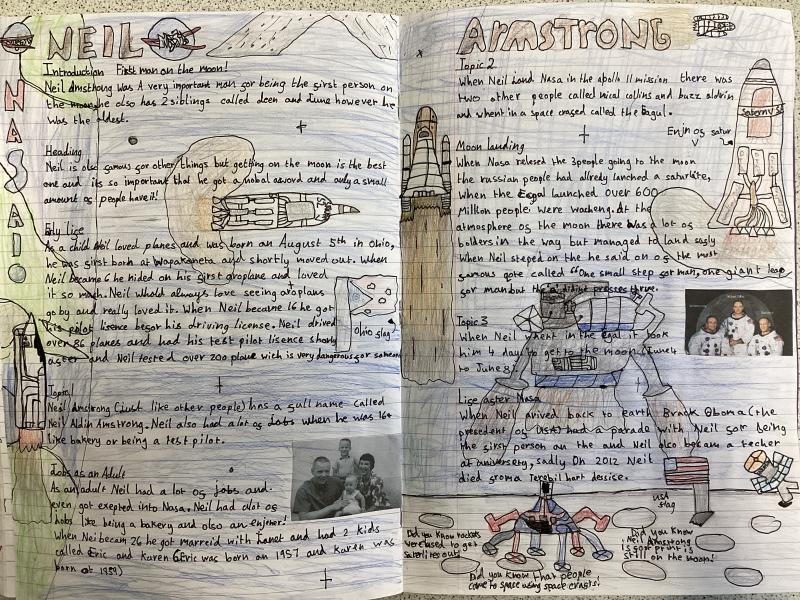 NEIL
NASA
Introduction First man on the moon!
Neil Armstrong was A very important man for being the first person on
the moon he also has 2 siblings called deen and June however he
was the oldest.
Heading
Neil is also famous for other things but getting on the moon is the best
one and its so important that he got a nobal award and only a small
amount of people have it!
Erly life
As a child Neil loved planes and was born an August 5th in Ohio,
he was first born at Wopakaneta and shortly moved out. When
Neil became 6 he rided on his first aroplane and loved
it so much. Neil whold always love seeing aroplans
go by and really loved it. When Neil became 16 he got
his pilot lisence befor his driving license. Neil drived
over 86 planes and had his test pilot lisence shortly
after and Neil tested over 200 plane wich is very dangerous for someone
ohio flag
Topic 1
Neil Armstrong (just like other people) has a full name called
Neil Aldin Amstrong. Neil also had a lot of Jobs when he was 16+
like bakery or being a test pilot.
Jobs as an Adult
As an adult Neil had a lot of jobs and
even got exepted into Nasa. Neil had alot of
hobs like being a bakery and also an enjiner!
When Nei became 26 he got marreid with Janet and had 2 kids
called Eric and Karen (Eric was born on 1957 and Karen was
born at 1959)
ARMSTRONG
Topic 2
When Neil and Nasa in the apollo 11 mission there was
two other people called mical collins and buzz aldrin
and whent in a space crased called the Eagul.
Enjin of satur
V
Moon landing
When Nasa relesed the 3people going to the moon
the russian people had allredy lanched a saturlite,
when the Eagal launched Over 600
Million people were waching. At the
atmosphere of the moon there was a lot of
bolders in the way but managed to land safly
When Neil steped on the he said on of the most
famous qote called "One small step for man, one giant leap
for man but he
Topic 3
When Neil whent in the Egal it took
him 4 days to get to the moon (June4
to June 8)
Life after Nasa
When Neil arived back to earth Brack Oboma (the
presedent of USA) had a parade with Neil for being
the first person on the and Neil also became a techer
at university, sadly On 2012 Neil
died from a Terebil hart
USA
flag
Did you know rockets
were used to get
saturlites out!
Did you know that people
came to space using space crafts!
Did you know
Neil Armstrong
foot print is
still on the moon!